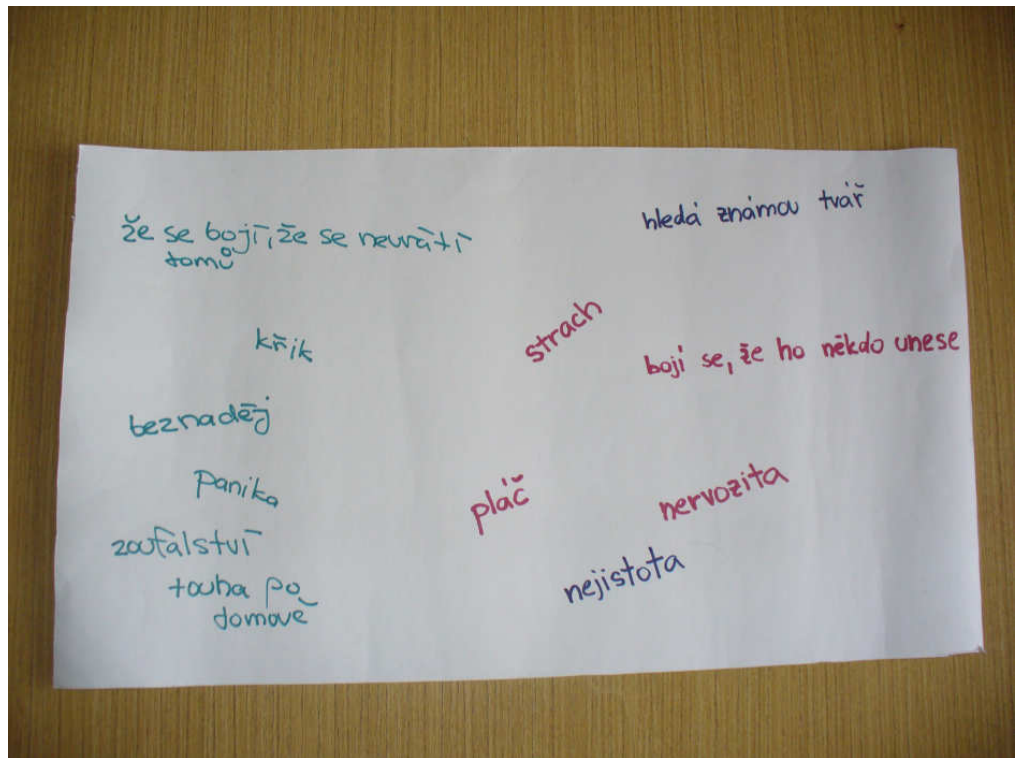 že se bojí, že se nevrátí
domů
křik
beznaděj
Panika
zoufalství
touha po
domově
hledá známou tvář
strach
bojí se, že ho někdo unese
pláč
nervozita
nejistota